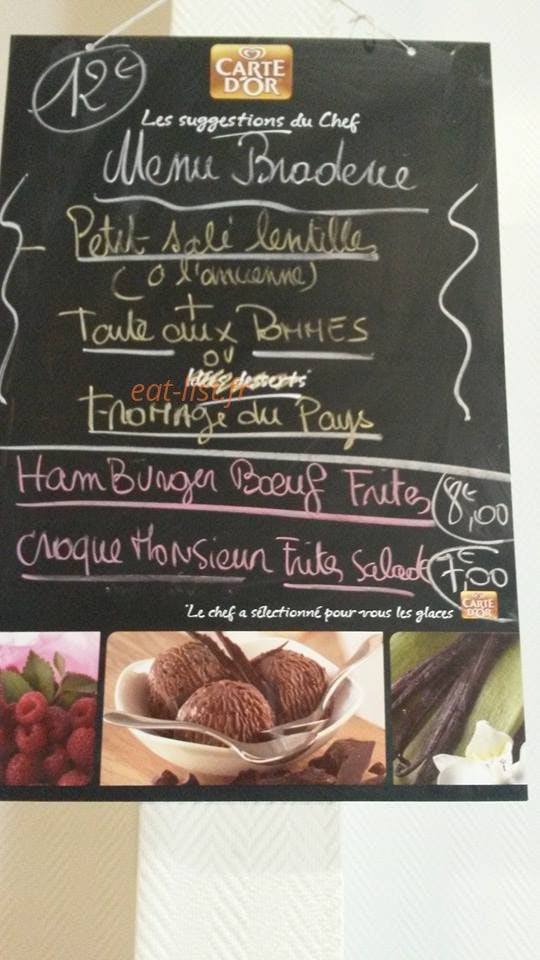 12€
CARTE D'OR
Les suggestions du Chef
Menu Braderie
Petit salé lentilles
(à l'ancienne)
+
Tarte aux POMMES
ou
Idées desserts
eat-list.fr
FROMAGE du Pays
HamBurger Bœuf Frites 8€,00
Croque Monsieur Frites Salade 7€,00
*Le chef a sélectionné pour vous les glaces CARTE D'OR